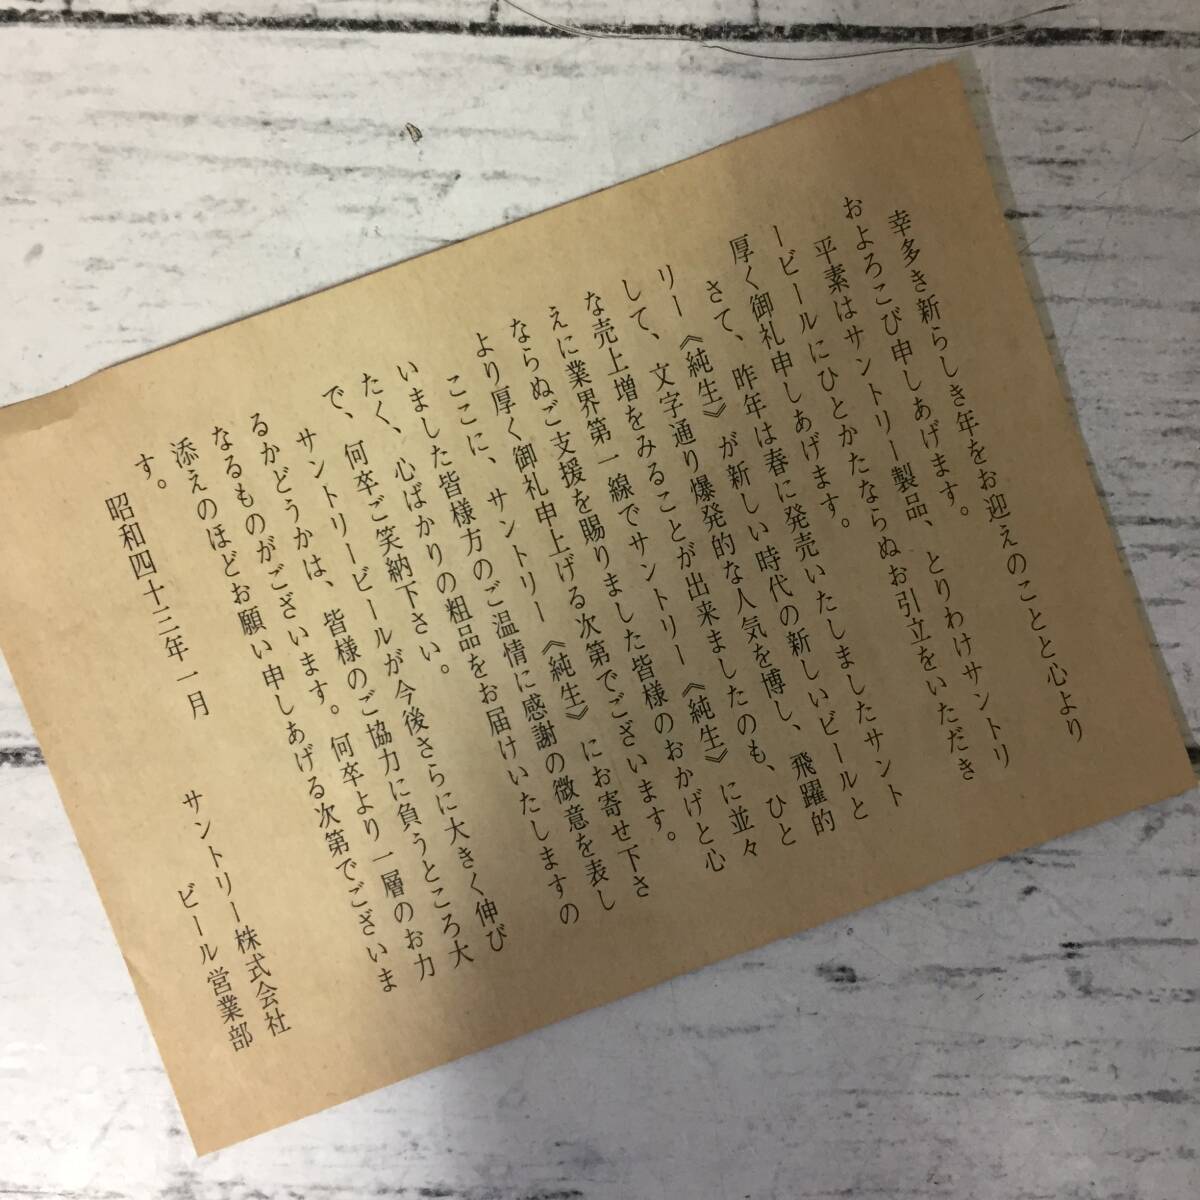 幸多き新らしき年をお迎えのことと心より
およろこび申しあげます。
平素はサントリー製品、とりわけサントリ
ービールにひとかたならぬお引立をいただき
厚く御礼申しあげます。
さて、昨年は春に発売いたしましたサント
リー《純生》が新しい時代の新しいビールと
して、文字通り爆発的な人気を博し、飛躍的
な売上増をみることが出来ましたのも、ひと
えに業界第一線でサントリー《純生》に並々
ならぬご支援を賜りました皆様のおかげと心
より厚く御礼申上げる次第でございます。
ここに、サントリー《純生》にお寄せ下さ
いました皆様方のご温情に感謝の微意を表し
たく、心ばかりの粗品をお届けいたしますの
で、何卒ご笑納下さい。
サントリービールが今後さらに大きく伸び
るかどうかは、皆様のご協力に負うところ大
なるものがございます。何卒より一層のお力
添えのほどお願い申しあげる次第でございま
す。
昭和四十三年一月
サントリー株式会社
ビール営業部